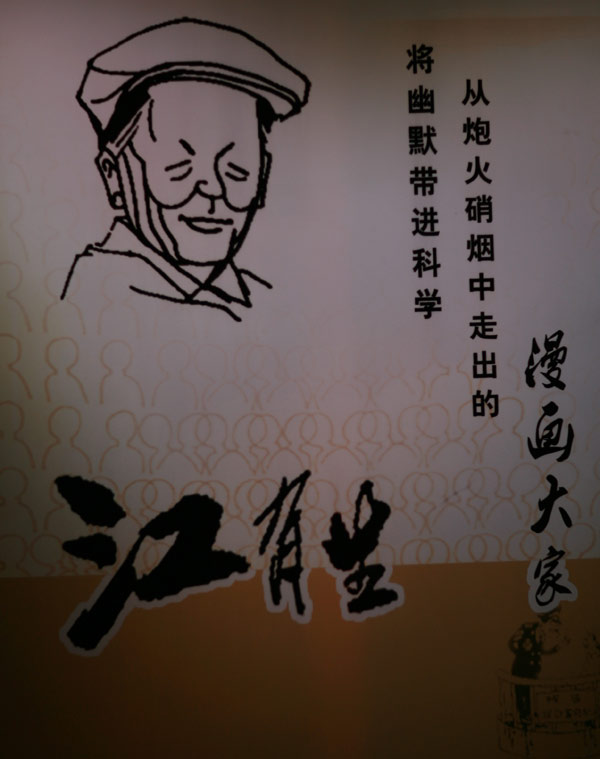 从炮火硝烟中走出的
将幽默带进科学
漫画大家
江有生